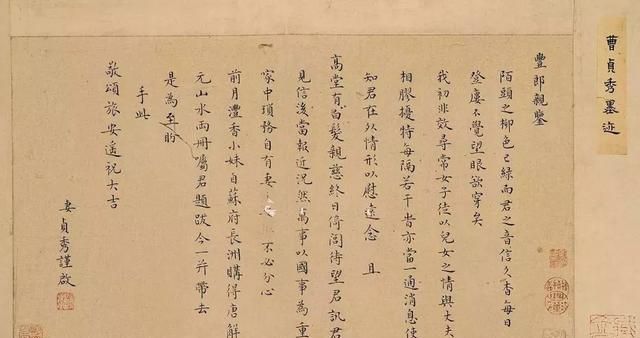 曹貞秀墨迹
豐郎親鑒
陌頭之柳色已綠而君之音信久杳每日
登廔不覺望眼欲穿矣
我初非效尋常女子徒以兒女之情與大夫
相膠擾特每隔若干旹亦當一通消息使
知君在外情形以慰遠念 且
高堂有白髮親慈終日倚閭待望君訊君
見信後當報近況然萬事以國事為重
家中瑣務自有妻 不必分心
前月灃香小妹自蘇府長洲購得唐解
元山水兩冊囑君題跋今一并帶去
是為至盼
手此
敬頌旅安遥祝大吉
妻貞秀謹啟